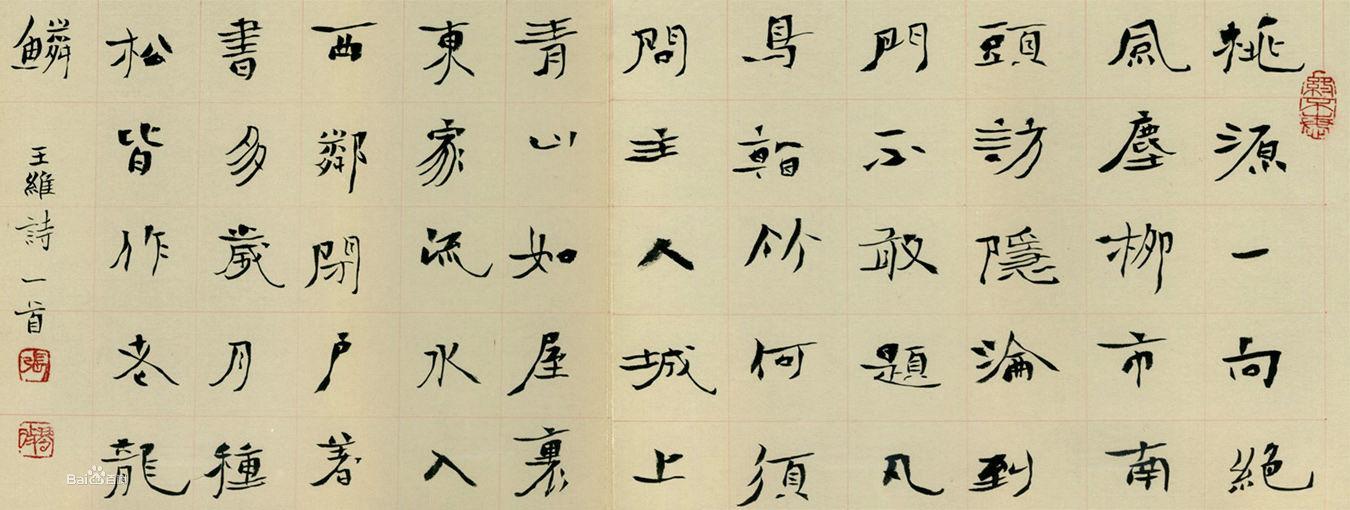 桃源一向絕
風塵柳市南
頭訪隱淪到
門不敢題凡
鳥看竹何須
問主人城上
青山如屋裏
東家流水入
西鄰閉戶著
書多歲月種
松皆作老龍
鱗
王維詩一首
張
Baidu百科